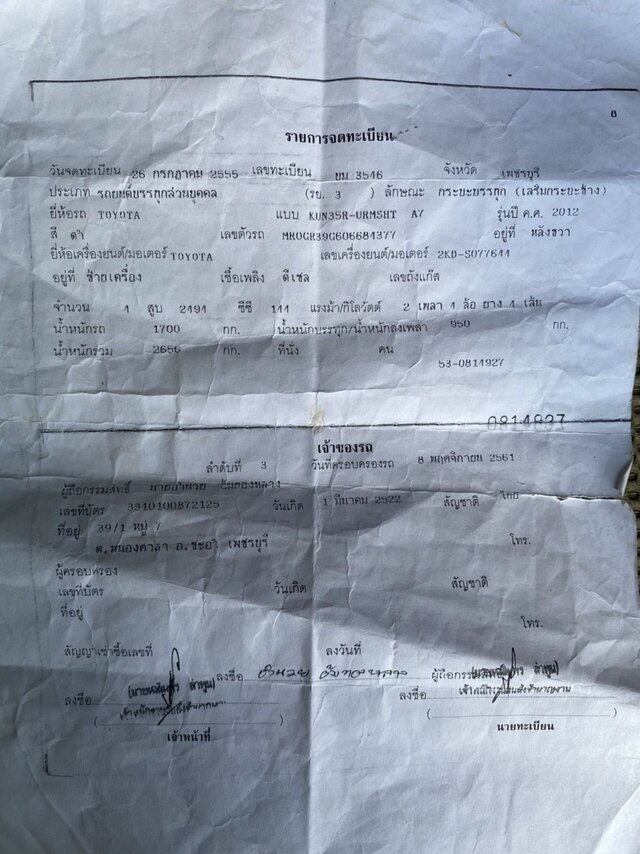 8
รายการจดทะเบียน
วันจดทะเบียน 26 กรกฎาคม 2555 เลขทะเบียน ยม 3546 จังหวัด เพชรบุรี
ประเภท รถยนต์บรรทุกส่วนบุคคล (รย. 3 ) ลักษณะ กระบะบรรทุก (เสริมกระบะข้าง)
ยี่ห้อรถ TOYOTA แบบ KUN35R-URMSHT A7 รุ่นปี ค.ศ. 2012
สี ดำ เลขตัวรถ MR0GR39G606684377 อยู่ที่ หลังขวา
ยี่ห้อเครื่องยนต์/มอเตอร์ TOYOTA เลขเครื่องยนต์/มอเตอร์ 2KD-S077644
อยู่ที่ ซ้ายเครื่อง เชื้อเพลิง ดีเซล เลขถังแก๊ส
จำนวน 4 สูบ 2494 ซีซี 144 แรงม้า/กิโลวัตต์ 2 เพลา 4 ล้อ ยาง 4 เส้น
น้ำหนักรถ 1700 กก. น้ำหนักบรรทุก/น้ำหนักลงเพลา 950 กก.
น้ำหนักรวม 2650 กก. ที่นั่ง คน
53-0814927
0814927
เจ้าของรถ
ลำดับที่ 3 วันที่ครอบครองรถ 8 พฤศจิกายน 2561
ผู้ถือกรรมสิทธิ์ นายอำนวย
เลขที่บัตร 3310100872125 วันเกิด 1 มีนาคม 2522 สัญชาติ ไทย
ที่อยู่ 39/1 หมู่ 7 โทร.
ต.หนองศาลา อ.ชะอำ เพชรบุรี
ผู้ครอบครอง สัญชาติ
เลขที่บัตร วันเกิด
ที่อยู่ โทร.
สัญญาเช่าซื้อเลขที่ ลงวันที่
ลงชื่อ อำนวย ผู้ถือกรรม
ลงชื่อ ลงชื่อ
เจ้าหน้าที่ นายทะเบียน